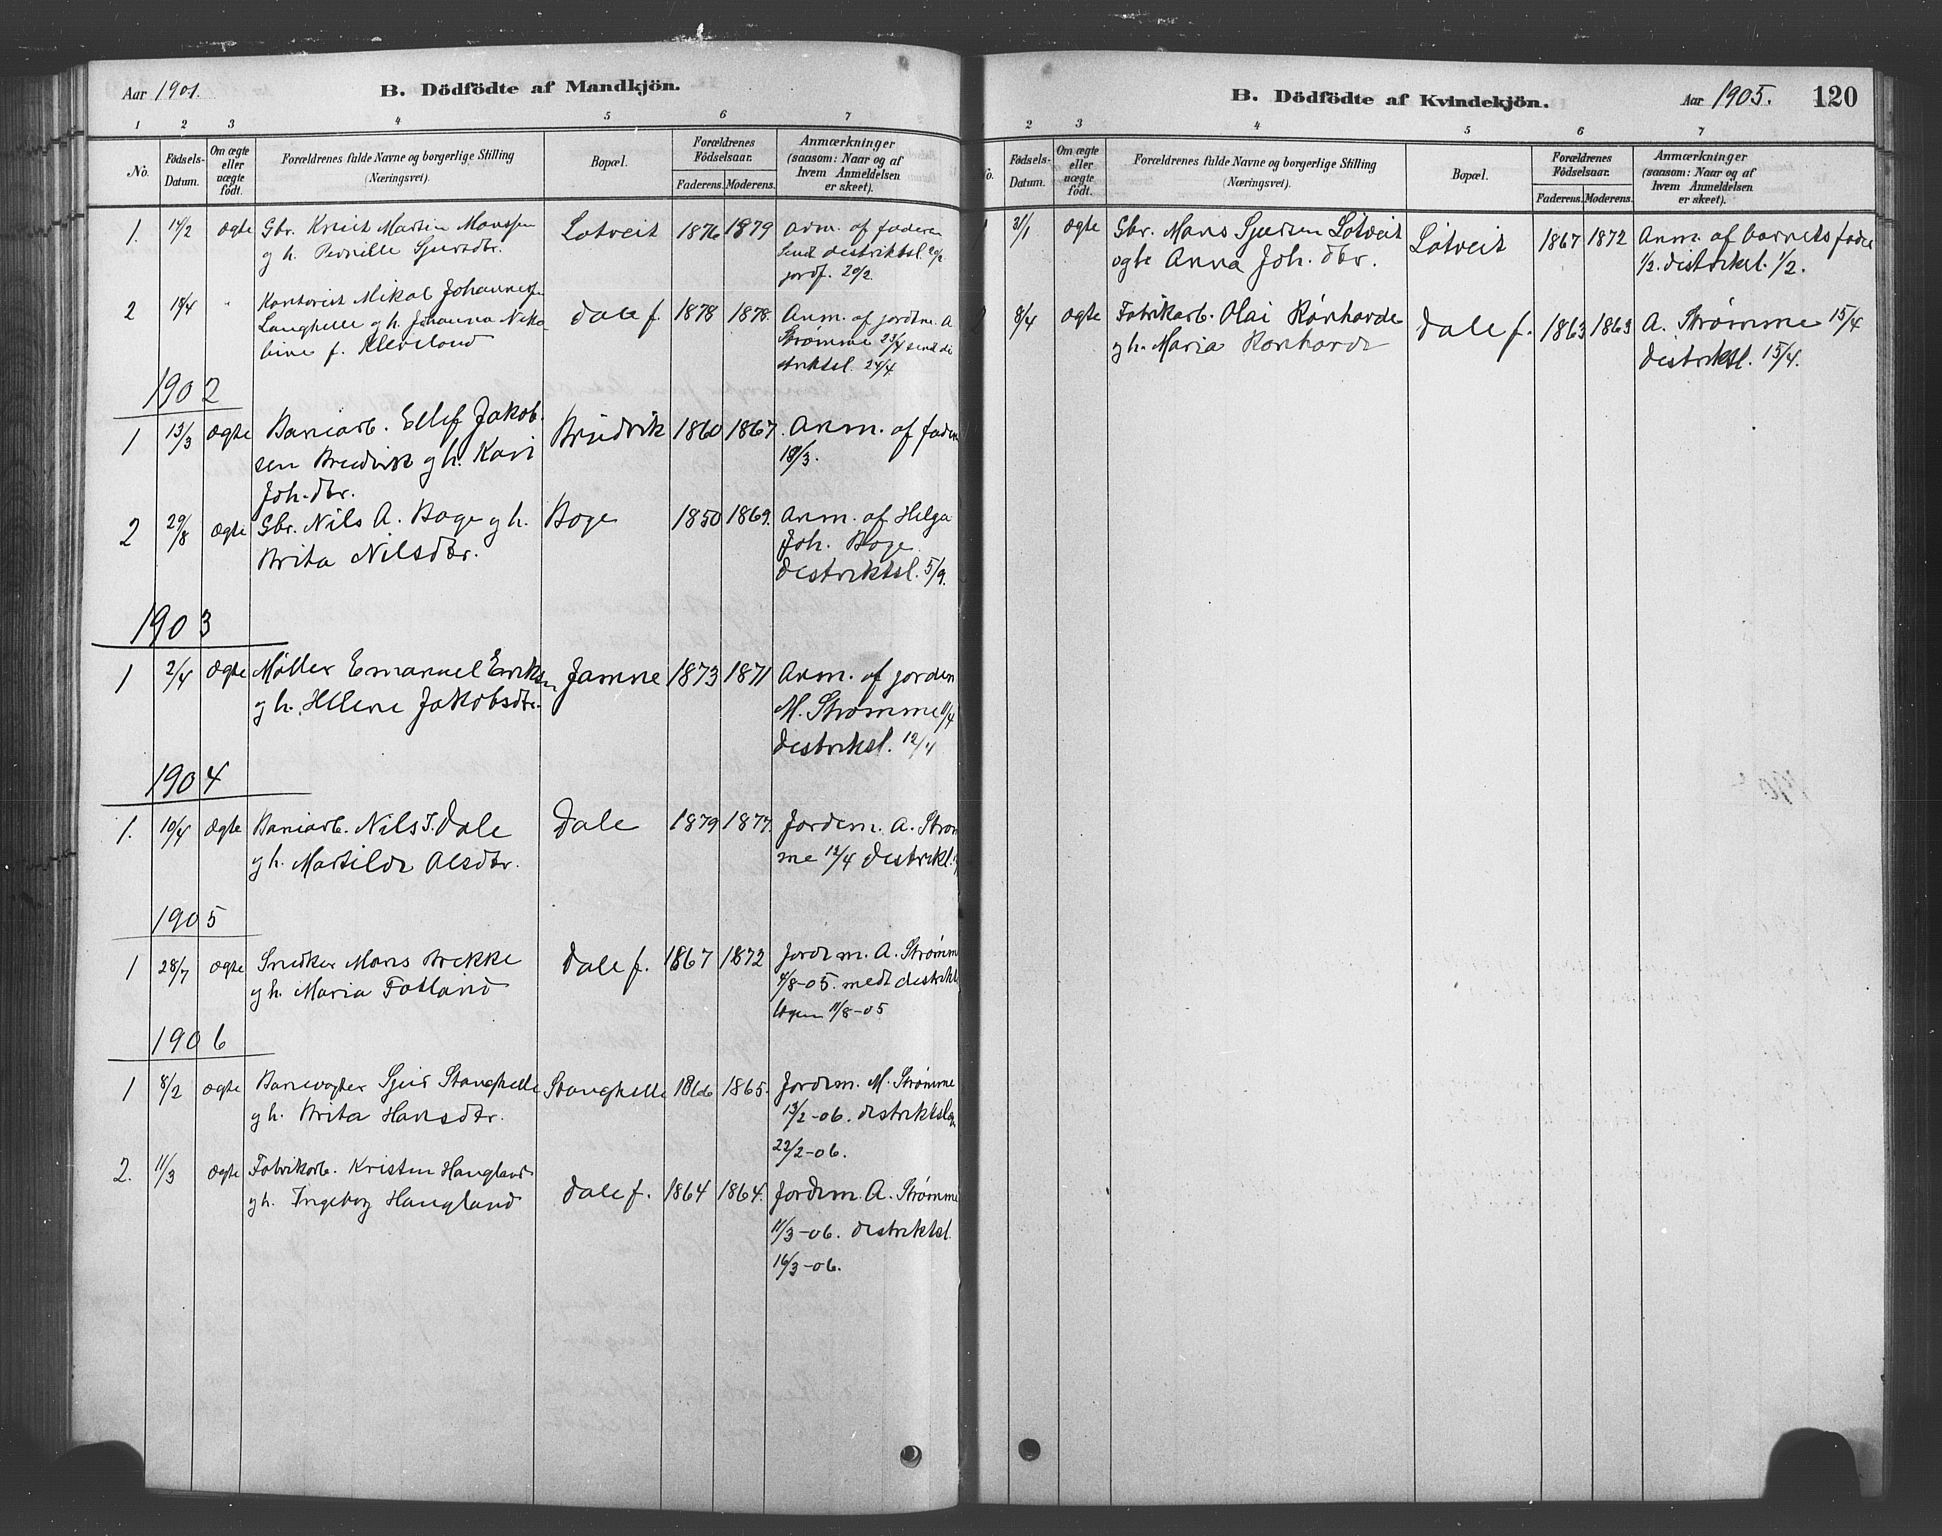 Aar 1901.
B. Dödfödte af Mandkjön.
1 2 3 4 5 6 7
No.
Födsels-Datum.
Om ægte eller uægte födt.
Forældrenes fulde Navne og borgerlige Stilling
(Næringsvei).
Bopæl.
Forældrenes Födselsaar.
Faderens. Moderens.
Anmærkninger
(saasom: Naar og af
hvem Anmeldelsen
er skeet).
1. 14/2 ægte Gbr. Knut Martin Monssen Lotveit 1876 1879 Anm. af faderen
g h. Pernille Sjursdtr. Sendt distriktsl. 20/2
jordf. 20/2
2 18/4 " Kontorist Mikal Johannessen Dale f. 1878 1878. Anm. af jordm. A
Langhelle g h. Johanna Niko Strømme 23/4 sendt di
line f. Kleveland striktsl. 24/4
1902
1 13/3 ægte Baniarb. Ellef Jakob- Bruvik 1860 1867. Anm. af faderen
sen Bruvik g h. Kari 18/3.
Joh.dtr.
2 29/8 ægte Gbr. Nils A. Boge g h. Boge 1850 1869. Anm. af Helga
Brita Nilsdtr. Joh. Boge
distriktsl. 5/9.
1903
1 2/4 ægte Møller Emanuel Eriksen Jamne 1873 1871 Anm. af jordem
g h. Helene Jakobsdtr. M. Strømme 11/4
distriksl. 12/4
1904
1. 10/4 ægte Baniarb. Nils J. Dale Dale 1879 1877. Jordem. A. Strøm
g h. Martilde Olsdtr. me 12/4 distrikl.
1905
1 28/7 ægte Snedker Mons Brekke Dale f. 1867 1872 Jordm. A. Strømme
g h. Maria Fotland 4/8-05. medt distrikts
lægen 11/8-05
1906
1 8/2 ægte Banevogter Sjur Stanghelle Stanghelle 1866 1865. Jordem. M. Strømme
g h. Brita Hansdtr. 13/2-06. distriktslæ
22/2-06.
2. 11/3 ægte Fabrikarb. Kristen Haugland Dale f. 1864 1864. Jordem. A. Strømme
g h. Ingeborg Haugland 11/3-06. distriktsl.
16/3-06.
B. Dödfödte af Kvindekjön.
Aar 1905. 120
2 3 4 5 6 7
Födsels-Datum.
Om ægte eller uægte födt.
Forældrenes fulde Navne og borgerlige Stilling
(Næringsvei).
Bopæl.
Forældrenes Födselsaar.
Faderens. Moderens.
Anmærkninger
(saasom: Naar og af
hvem Anmeldelsen
er skeet).
1 31/1 ægte Gbr. Mons Sjursen Lotveit Lotveit 1867 1872 Anm. af barnets fader
ogte Anna Joh. dtr. 1/2. distriksl. 1/2.
2 8/4 ægte Fabrikarb. Olai Rónhovde Dale f. 1863 1863 A. Strømme 15/4
g h. Maria Ronhovde distriksl. 15/4.